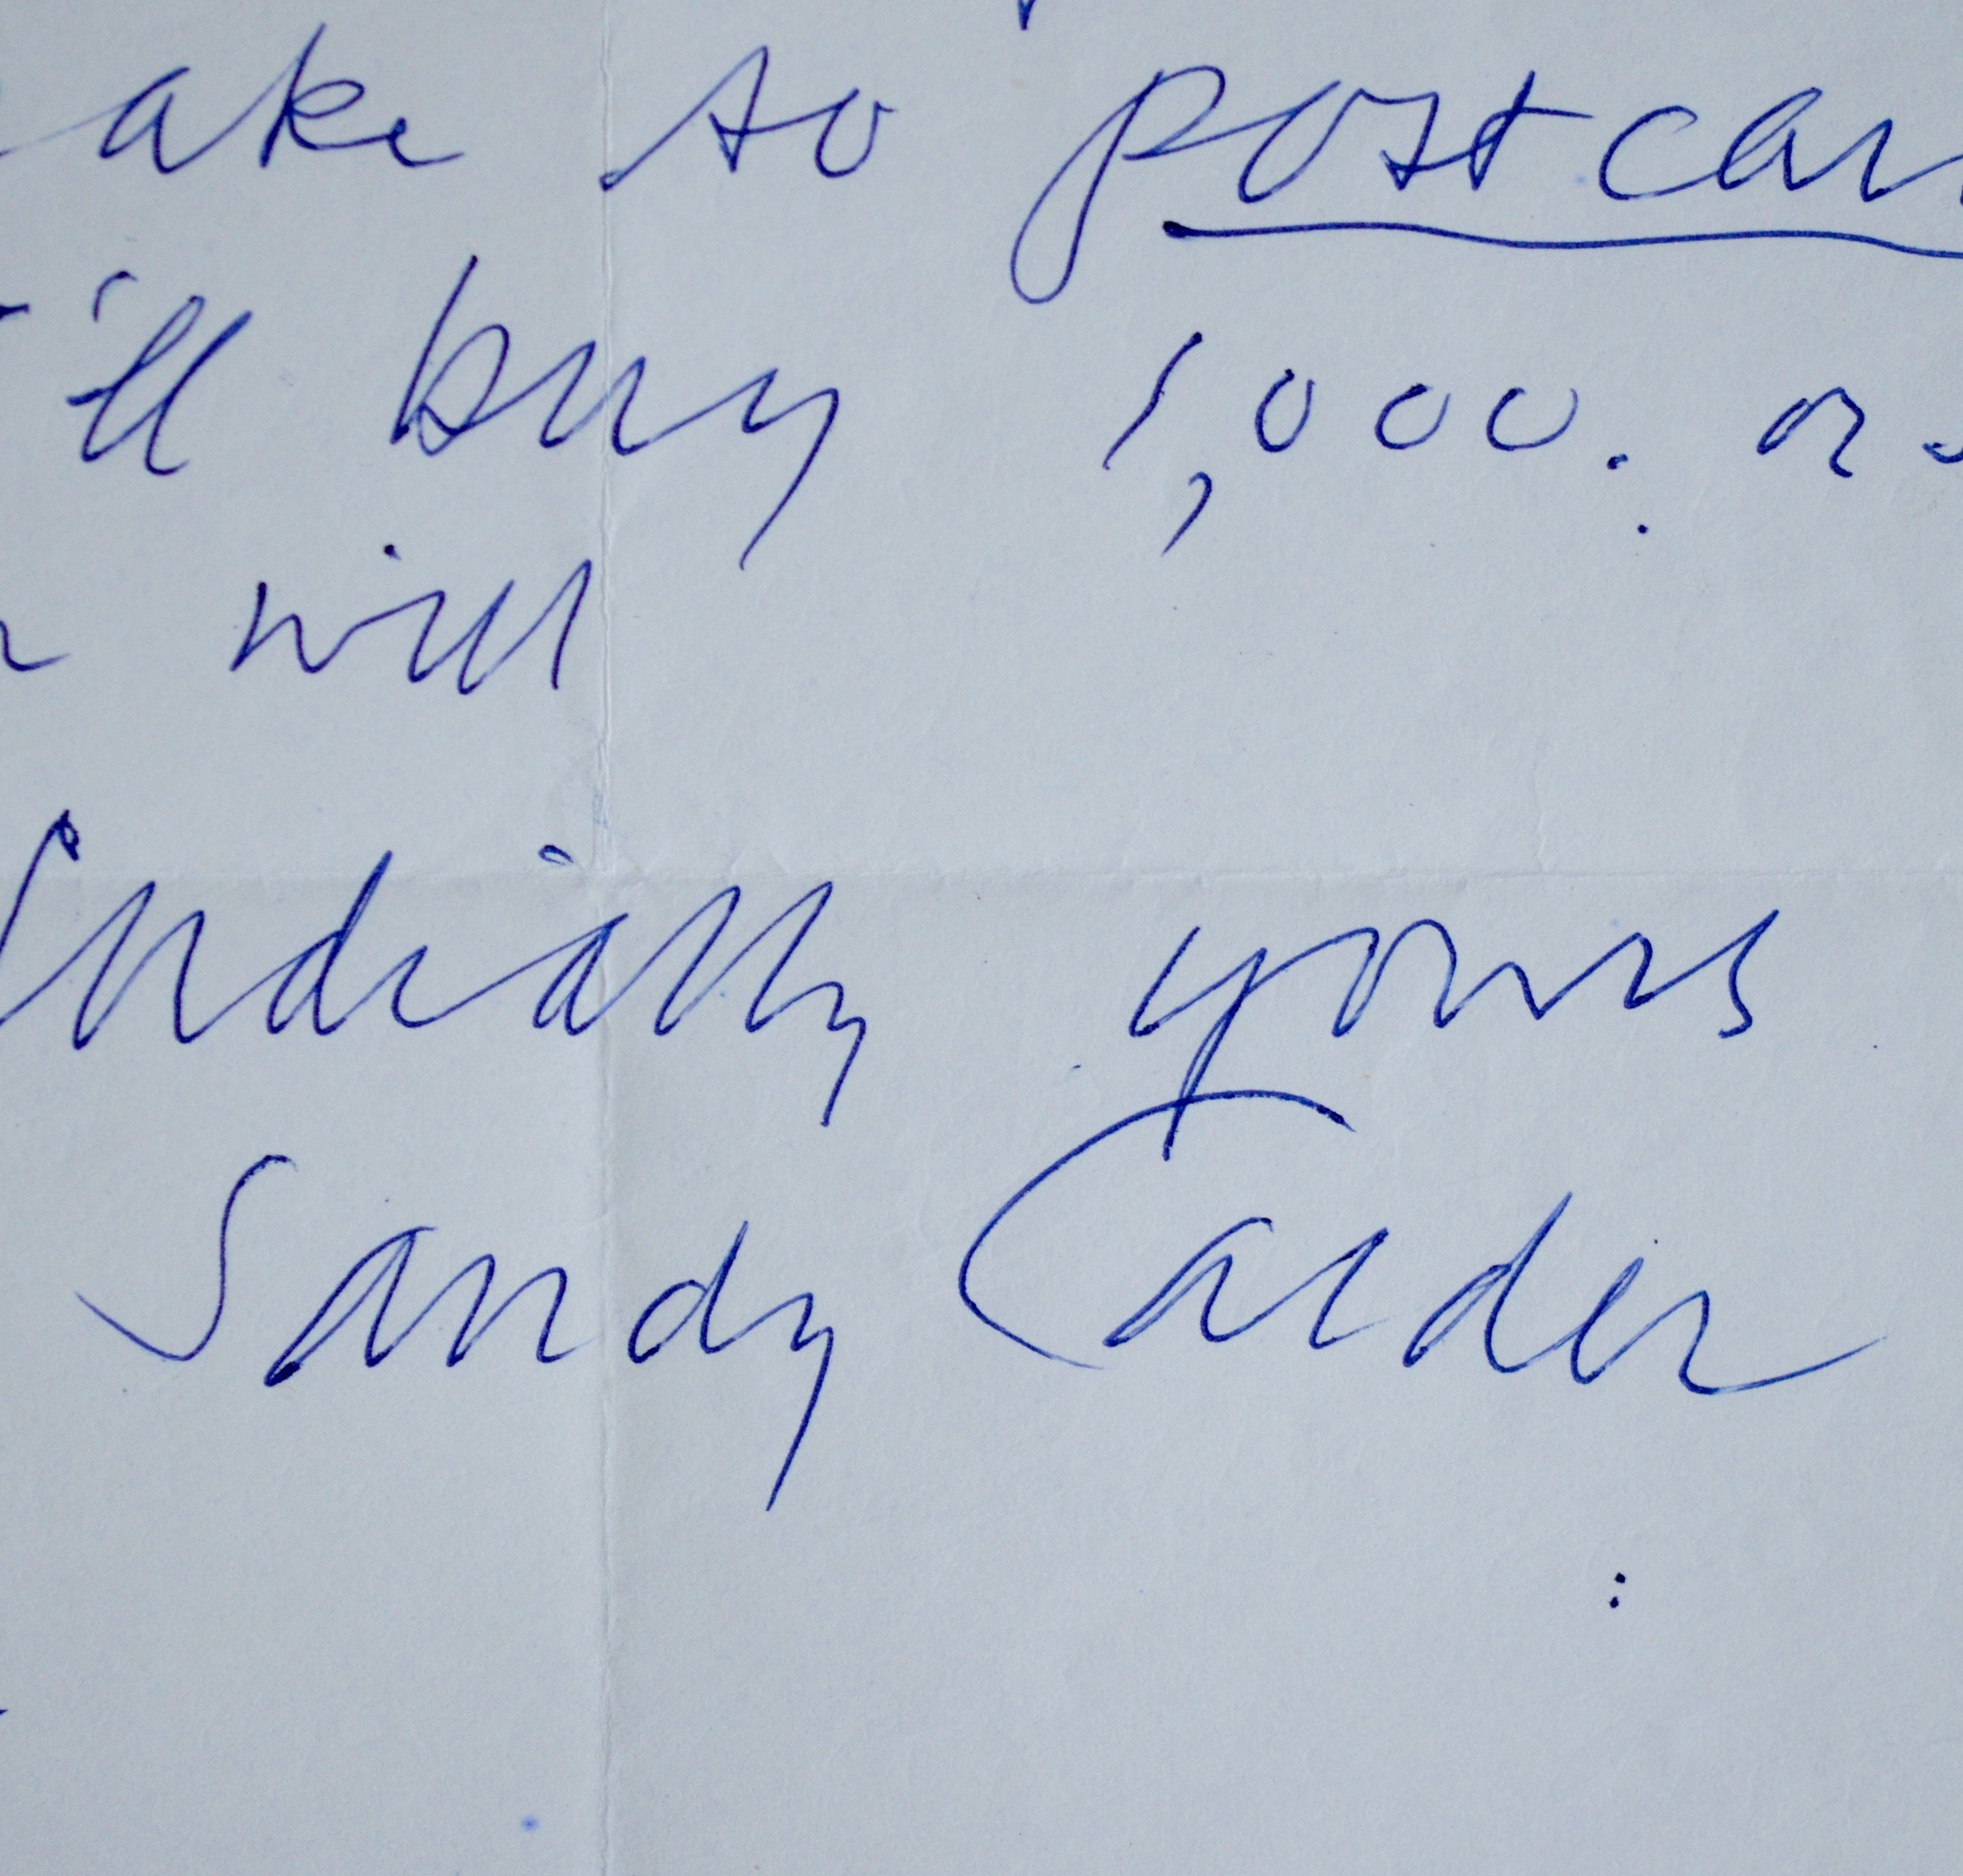 ake to postcar
'll buy 1,000. or
will
Cordially yours
Sandy Calder